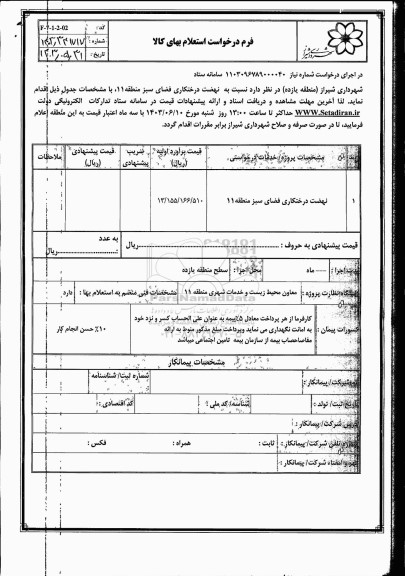 فرم درخواست استعلام بهای کالا
کد: F-7-1-2-02
شماره:
تاریخ:
در اجرای درخواست شماره نیاز ۱۱۰۳۰۹۶۷۸۹۰۰۰۰۴۰ سامانه ستاد
شهرداری شیراز (منطقه یازده) در نظر دارد نسبت به نهضت درختکاری فضای سبز منطقه۱۱، با مشخصات جدول ذیل اقدام
نماید. لذا آخرین مهلت مشاهده و دریافت اسناد و ارائه پیشنهادات قیمت در سامانه ستاد تدارکات الکترونیکی دولت
WWW.Setadiran.ir حداکثر تا ساعت ۱۳:۰۰ روز شنبه مورخ ۱۴۰۳/۰۶/۱۰ با سه ماه اعتبار قیمت به این منطقه اعلام
فرمایید، تا در صورت صرفه و صلاح شهرداری شیراز برابر مقررات اقدام گردد.
مشخصات پروژه/خدمات درخواستی قیمت برآورد اولیه (ریال) ضریب پیشنهادی قیمت پیشنهادی (ریال) ملاحظات
۱ نهضت درختکاری فضای سبز منطقه۱۱ ۱۳/۱۵۵/۱۶۶/۵۱۰
قیمت پیشنهادی به حروف : ریال به عدد : ریال
مدت اجرا : ---- ماه محل اجرا : سطح منطقه یازده
دستگاه نظارت پروژه : معاون محیط زیست و خدمات شهری منطقه ۱۱ مشخصات فنی منضم به استعلام بها : دارد
کسورات پیمان : کارفرما از هر پرداخت معادل ۵٪ بیمه به عنوان علی الحساب کسر و نزد خود
به امانت نگهداری می نماید وپرداخت مبلغ مذکور منوط به ارائه
مفاصاحساب بیمه از سازمان بیمه تامین اجتماعی میباشد
۱۰٪ حسن انجام کار
مشخصات پیمانکار
نام شرکت/ پیمانکار : شماره ثبت/ شناسنامه :
تاریخ ثبت/ تولد : شناسه/ کد ملی : کد اقتصادی :
آدرس شرکت/ پیمانکار :
شماره تلفن شرکت/ پیمانکار : ثابت : همراه : فکس :
مهر و امضاء شرکت/ پیمانکار :
ParsNamadData